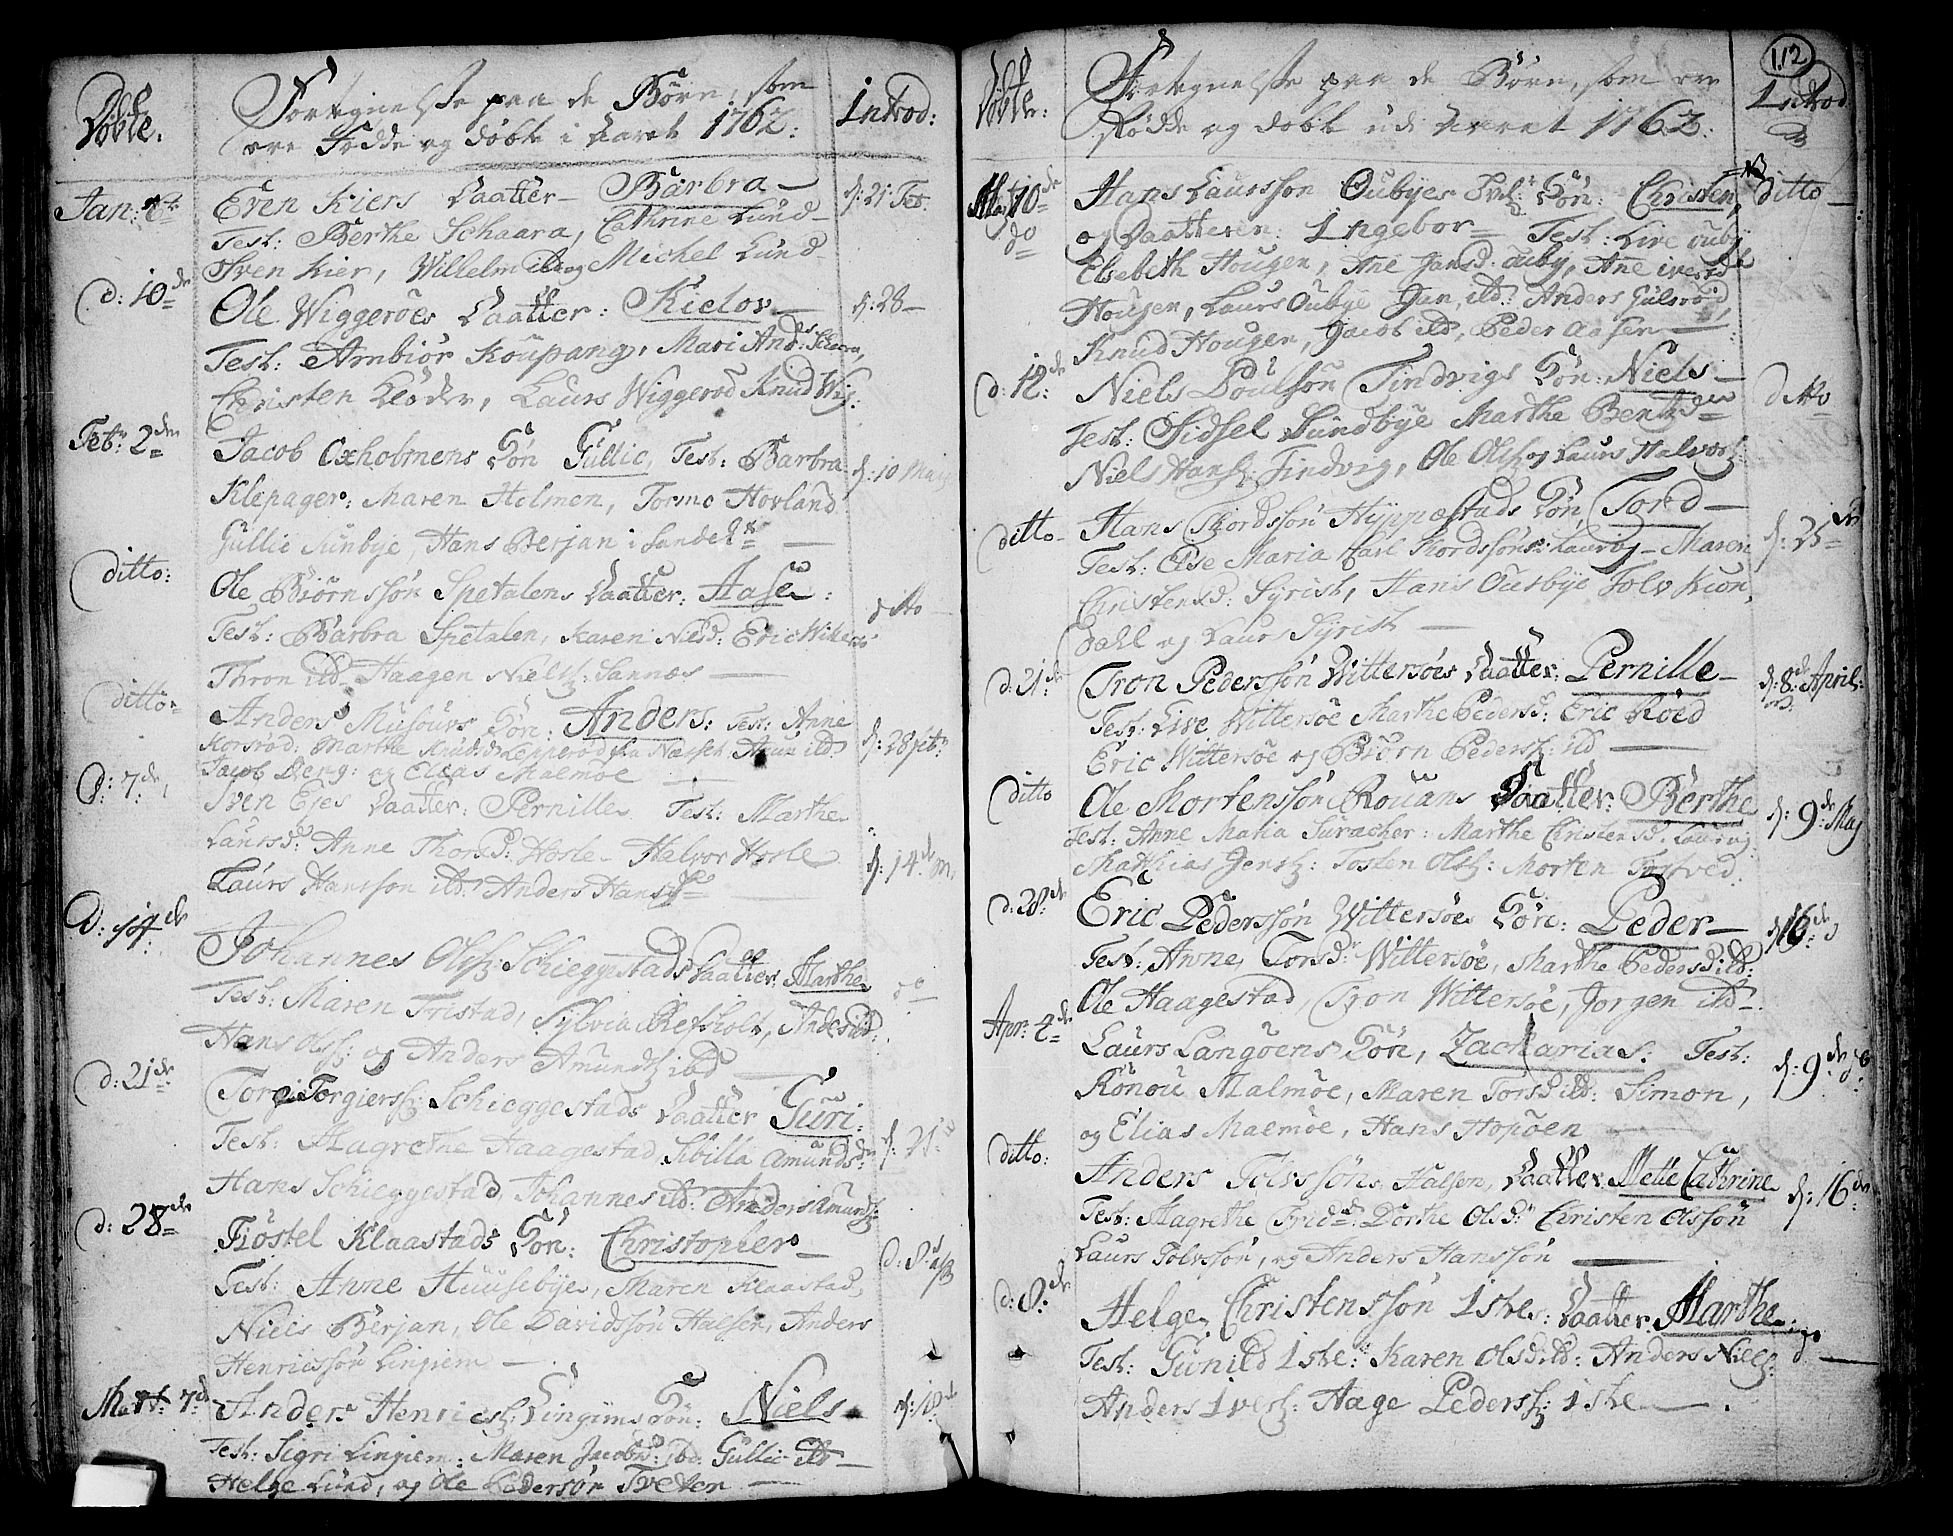 Døbte.
Fortegnelse paa de Børn, som
ere Fødde og døbte i Aaret 1762.
Introd:
Jan:
Even Kiers Daatter Barbra
d: 21 Feb.
Test: Berthe Schaara, Cathrine Lund
Sven Kier, Wilhelm ibd og Michel Lund
d: 10de
Ole Wiggeröes Daatter: Kielov
d: 28
Test: Ambiör Koupang, Mari Ands: Schaara,
Christen Klöder, Laurs Wiggeröd Knud Wig:
Feb: 2den
Jacob Oxholmens Sön Gullic, Test: Barbra
d: 10 Maij
Klepager: Maren Holmen, Tormo Hovland
Gullic Sunbye, Hans Berjan i Sande
ditto:
Ole Biörnssön Spetalens Daatter: Aase:
dito
Test: Barbra Spetalen, Karen Nilsd: Eric Witters:
Thron ibd Haagen Nielss: Sannæs
ditto
Anders Musöurs Sön: Anders: Test: Anne
d: 28
Korsröd: Marthe
Jacob Berg: og Elias Malmöe
d: 7de
Iven Ejes Daatter: Pernille Test: Marthe
Laursd: Anne Thorsd: Hosle Halvor Hosle
d: 14de M.
Laurs Hansson ibd: Anders Hanss:
d: 14de
Johannes Olss: Schieggestads Daatter Marthe
do
Test: Maren Fristad, Sylvia Refsholt,
Hans Olss: og Anders Amundss ibd
d: 21de
Torgi Torgierss: Schieggestads Daatter Guri:
d: 21
Test: Magrethe Haagestad, Sibilla Amundsd:
Hans Schieggestad, Johannes ibd: Anders Amundss:
d: 28de
Fiöstel Klaastads Sön: Christopher
d: 8
Test: Anne Huusebye, Maren Klaastad,
Niels Berjan, Ole Davidssön Halsen, Anders
Henricssön Linjiem
Mart: 7de
Anders Henricss: Lingiems Sön: Niels
d: 10
Test: Sigri Linjiem: Maren Jacobsd: ibd: Gullic ibd
Helge Lund, og Ole Pederssön Tveter
112
Døbte:
Fortegnelse paa de Børn, som ere
Födde og döbt udi Aaret 1762.
Introd
10de
Hans Laurssön Oubyes Sön: Christen,
ditto
do
og Daatteren: Ingebor Test: Live Ouby
Elsebeth Hougen, Ane Jansd. Ouby, Ane
Hougen, Laurs Oubye Jan, ibd: Anders Gulsröd
Knud Hougen, Jacob ibd, Peder Aasen
d: 12de
Niels Poulsön Tindvigs Sön: Niels
ditto
Test: Sidsel Sundbye Marthe Bentsd
Niels Hanss: Tindvig, Ole Olss og Laurs Halvors:
ditto
Hans Thordssön Hyppestads Sön, Tord
d: 25
Test: Else Maria Carl Thordssöns: Laurvig Maren
Christensd: Syrist, Hans Ousbye Tolv Kion,
dahl og Laurs Syrist
d: 21de
Tron Pederssön Wittersöes Daatter: Pernille
d: 8de April:
Test: Live Wittersöe Marthe Pedersd: Eric Röed
Eric Wittersöe og Biörn Pederss: ibd
ditto
Ole Mortenssön Rouans Daatter: Berthe
d: 9de Maj
Test: Anne Maria Suracher: Marthe Christensd: Laurvig
Matthias Jenss: Tosten Olss: Morten
d: 28de
Eric Pederssön Wittersöes Sön: Peder
16de
Test: Anne Torsd: Wittersöe, Marthe Pedersd ibd:
Ole Haagestad, Tron Wittersöe, Jorgen ibd
Apr: 4de
Laurs Langöens Sön, Zacharias. Test:
d: 9de
Rönou Malmöe, Maren Torsd ibd: Simon,
og Elias Malmöe, Hans Hopöen
ditto:
Anders Tolvssön Halsen, Daatter Mette Cathrine
d: 16de
Test: Magrethe Dorthe Olsd: Christen Olssön
Laurs Tolvssön, og Anders Hanssön
d: 8de
Helge Christenssön Istre: Daatter. Marthe
do
Test: Gunild Istre: Karen Olsd ibd: Anders Niels:
Anders Iverss: Aage Pederss: Istre